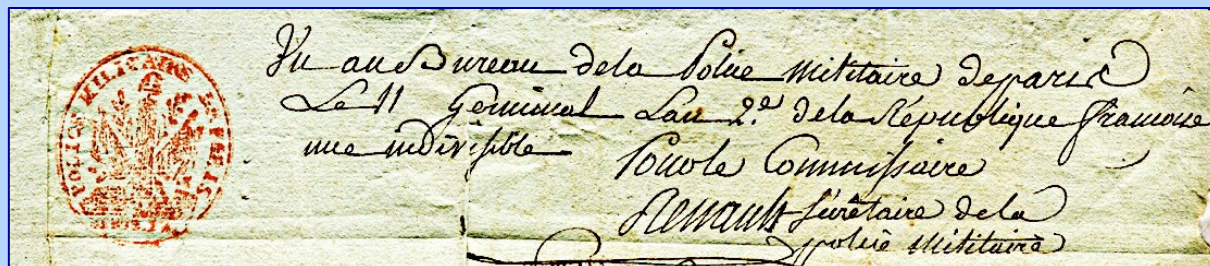 POLICE MILITAIRE DE PARIS
Vu au Bureau de la Police Militaire de paris
Le 11 Germinal Lan 2.e de la République francoise
une indivisible
Pour le Commissaire
Renault Sécrétaire de la
police Militaire